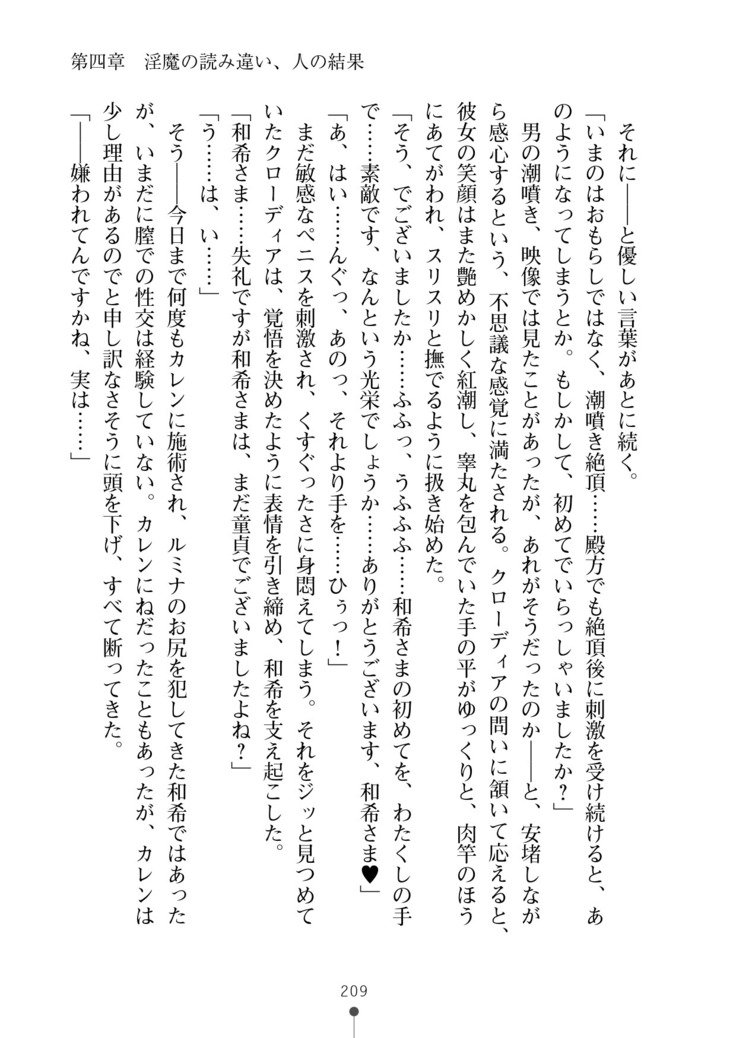 第四章　淫魔の読み違い、人の結果
それに――と優しい言葉があとに続く。
「いまのはおもらしではなく、潮噴き絶頂……殿方でも絶頂後に刺激を受け続けると、あ
のようになってしまうとか。もしかして、初めてでいらっしゃいましたか？」
男の潮噴き、映像では見たことがあったが、あれがそうだったのか――と、安堵しなが
ら感心するという、不思議な感覚に満たされる。クローディアの問いに頷いて応えると、
彼女の笑顔はまた艶めかしく紅潮し、睾丸を包んでいた手の平がゆっくりと、肉竿のほう
にあてがわれ、スリスリと撫でるように扱き始めた。
「そう、でございましたか……ふふっ、うふふふ……和希さまの初めてを、わたくしの手
で……素敵です、なんという光栄でしょうか……ありがとうございます、和希さま♥」
「あ、はい……んぐっ、あのっ、それより手を……ひぅっ！」
まだ敏感なペニスを刺激され、くすぐったさに身悶えてしまう。それをジッと見つめて
いたクローディアは、覚悟を決めたように表情を引き締め、和希を支え起こした。
「和希さま……失礼ですが和希さまは、まだ童貞でございましたよね？」
「う……は、い……」
そう――今日まで何度もカレンに施術され、ルミナのお尻を犯してきた和希ではあった
が、いまだに膣での性交は経験していない。カレンにねだったこともあったが、カレンは
少し理由があるのでと申し訳なさそうに頭を下げ、すべて断ってきた。
「――嫌われてんですかね、実は……」
209